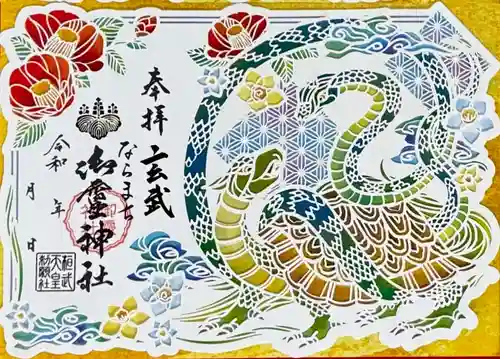 奉拝
玄武
ならまち
御霊神社
令和 年
月 日
桓武
天皇
勅願社